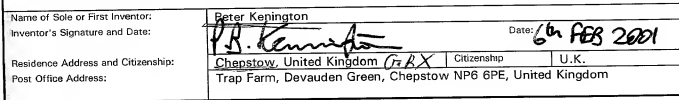 Name of Sole or First Inventor: Peter Kenington
Inventor's Signature and Date: P.B. Kenington Date: 6th FEB 2001
Residence Address and Citizenship: Chepstow, United Kingdom GBX Citizenship U.K.
Post Office Address: Trap Farm, Devauden Green, Chepstow NP6 6PE, United Kingdom